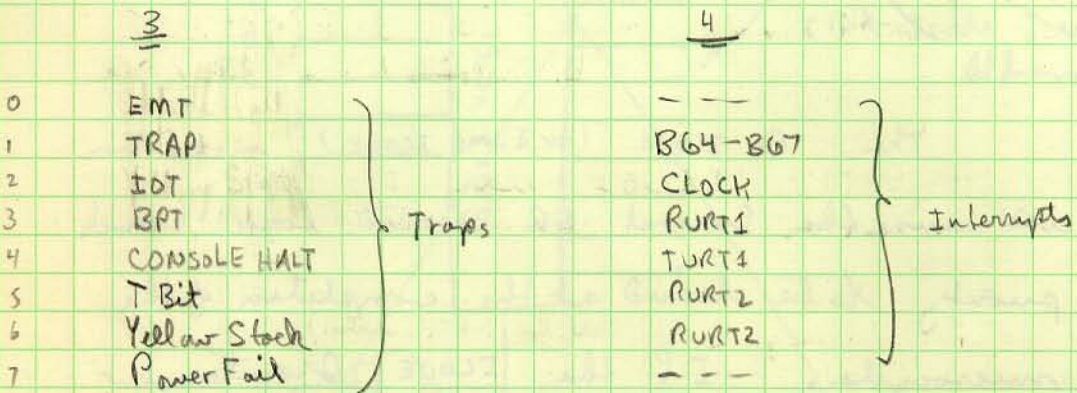 3 4
0 EMT - - -
1 TRAP BG4-BG7
2 IOT CLOCK
3 BPT Traps RURT1 Interrupts
4 CONSOLE HALT TURT1
5 T Bit RURT2
6 Yellow Stack RURT2
7 Power Fail - - -